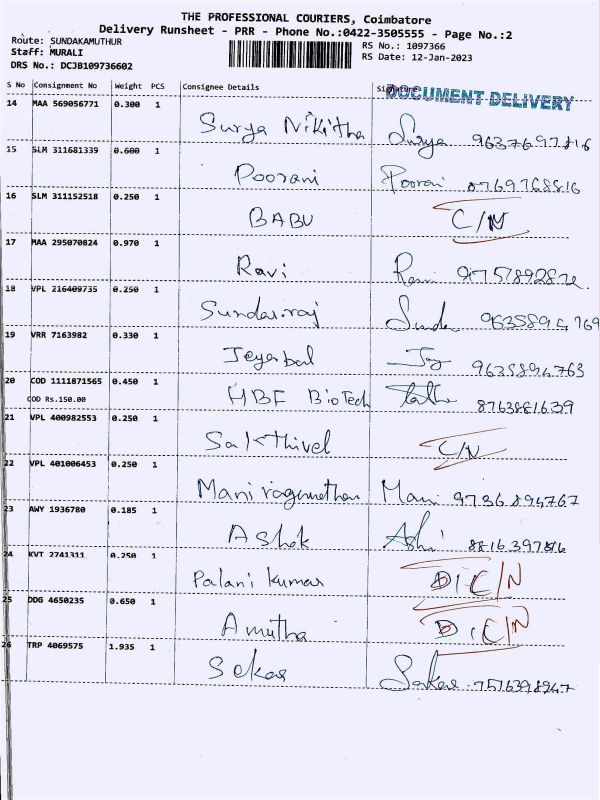 THE PROFESSIONAL COURIERS, Coimbatore
Delivery Runsheet - PRR - Phone No.:0422-3505555 - Page No.:2
Route: SUNDAKAMUTHUR
Staff: MURALI
DRS No.: DCJB109736602
RS No.: 1097366
RS Date: 12-Jan-2023
S No Consignment No Weight PCS Consignee Details Signature
DOCUMENT DELIVERY
14 MAA 569056771 0.300 1
Surya Nikitha Surya 9637697816
15 SLM 311681339 0.600 1
Poorani Poorani 8769768816
16 SLM 311152518 0.250 1
BABU C/N
17 MAA 295070824 0.970 1
Ravi Ravi
18 VPL 216409735 0.250 1
Sundarraj Sunda
19 VRR 7163982 0.330 1
Jeyabal Jey 9635894763
20 COD 1111871565 0.450 1
COD Rs.150.00
HBF BioTech 8763881639
21 VPL 400982553 0.250 1
Sakthivel C/N
22 VPL 401006453 0.250 1
Mani ragunathan Mani 9736894767
23 AWY 1936780 0.185 1
Ashok Ash 8816397816
24 KVT 2741311 0.250 1
Palani kumar D1C/N
25 DDG 4650235 0.650 1
Amutha D1C/N
26 TRP 4069575 1.935 1
Sekar Sekar 7516398947